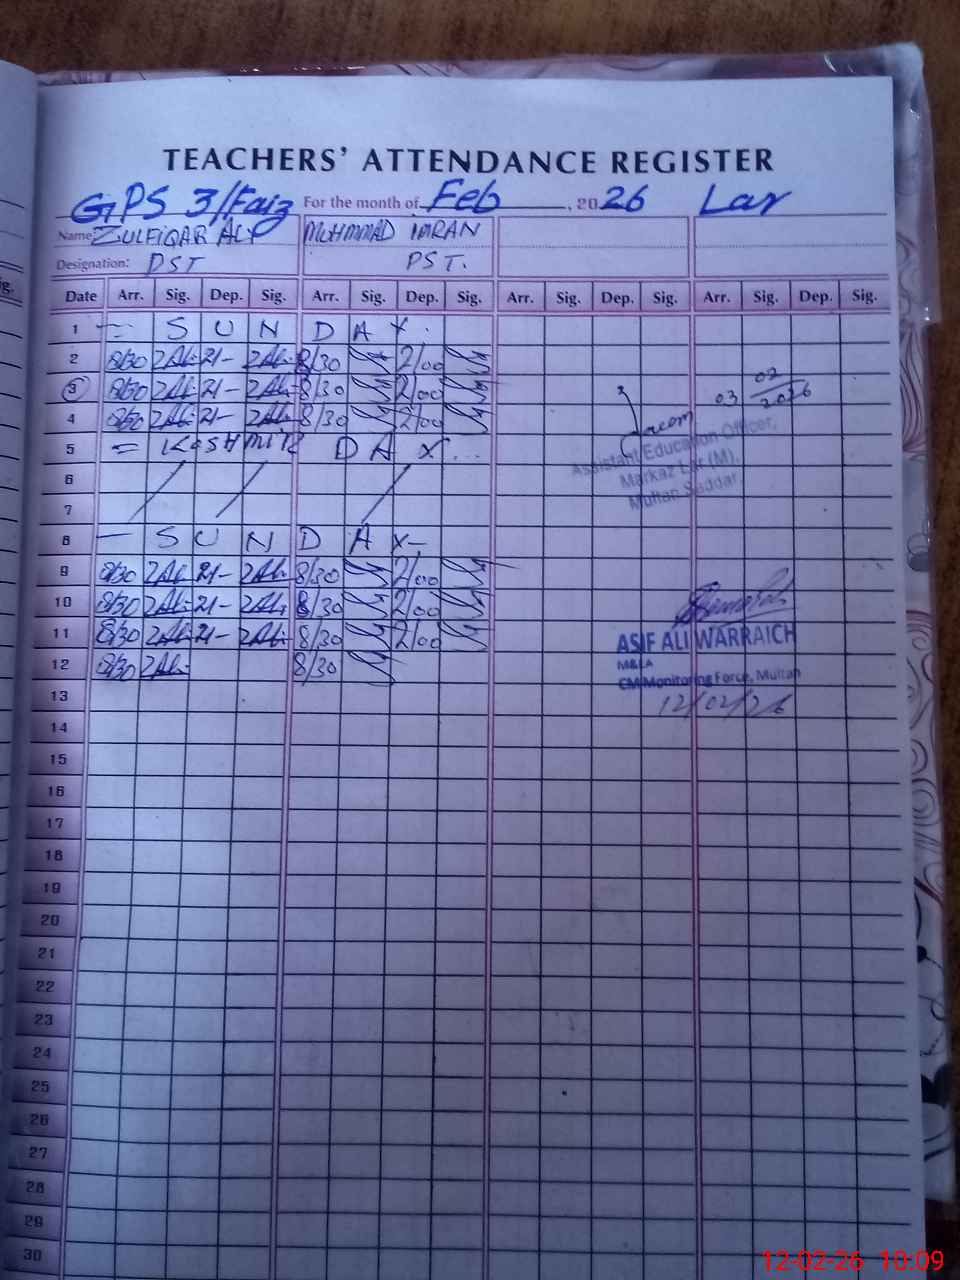 TEACHERS' ATTENDANCE REGISTER
GPS 3/Faiz For the month of Feb, 2026 Lar
Name: ZULFIQAR ALI MUHMMAD IMRAN
Designation: PST PST.
Date Arr. Sig. Dep. Sig. Arr. Sig. Dep. Sig. Arr. Sig. Dep. Sig. Arr. Sig. Dep. Sig.
1 — S U N D A Y.
2 8/30 ZAli 2/- ZAli 8/30 2/00
3 8/30 ZAli 2/- ZAli 8/30 2/00 03 02/2026
4 8/30 ZAli 2/- ZAli 8/30 2/00
Assistant Education Officer,
5 = KASHMIR DAY...
Markaz Lar (M),
6
Multan Saddar.
7
8 — S U N D A Y —
9 8/30 ZAli 2/- ZAli 8/30 2/00
10 8/30 ZAli 2/- ZAli 8/30 2/00
11 8/30 ZAli 2/- ZAli 8/30 2/00
ASIF ALI WARRAICH
M&EA
12 8/30 ZAli 8/30
CM Monitoring Force, Multan
13
12/02/26
14
15
16
17
18
19
20
21
22
23
24
25
26
27
28
29
30
12-02-26 10:09